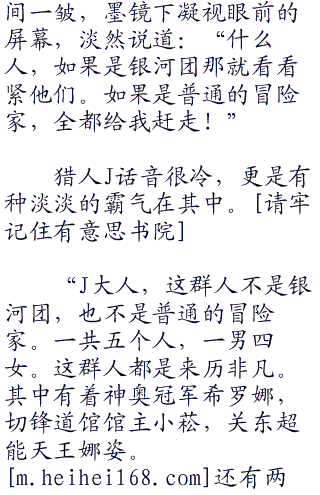 间一皱，墨镜下凝视眼前的
屏幕，淡然说道：“什么
人，如果是银河团那就看看
紧他们。如果是普通的冒险
家，全都给我赶走！”
猎人J话音很冷，更是有
种淡淡的霸气在其中。[请牢
记住有意思书院]
“J大人，这群人不是银
河团，也不是普通的冒险
家。一共五个人，一男四
女。这群人都是来历非凡。
其中有着神奥冠军希罗娜，
切锋道馆馆主小菘，关东超
能天王娜姿。
[m.heihei168.com]还有两